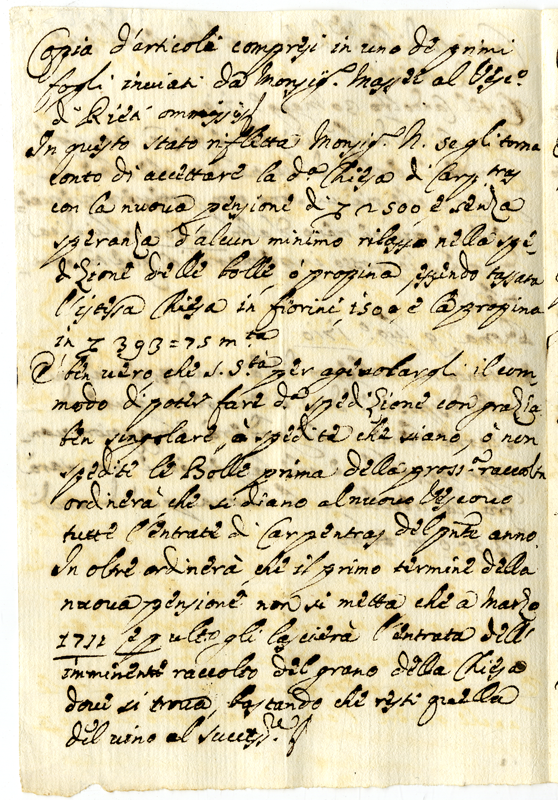 Copia d'articoli compresi in uno de primi
fogli inviati da Monsig.r Massei al Vesc.o
di Rieti ommissis
In questo stato rifletta Monsig.r N. se gli torna
conto di accettare la d.a Chiesa di Carp.tras
con la nuova pensione di 2500 e senza
speranza d'alcun minimo rilasso nella spe-
dizione delle bolle, o propina, essendo tassata
l'istessa Chiesa in fiorini 1500 e la propina
in 393=75 m.ta
È ben vero che S. S.tà per agevolargli il com-
modo di poter fare d.a spedizione con grazia
ben singolare, ò spedite che siano, ò non
spedite le Bolle prima della pross.a raccolta
ordinerà che si diano al nuovo Vescovo
tutte l'entrate di Carpentras del pñte anno
In oltre ordinerà che il primo termine della
nuova pensione non si metta che a Marzo
1711 e p ult.o gli lascierà l'entrata dell'
imminente raccolto del grano della Chiesa
dove si trova, bastando che resti quella
del vino al success.re